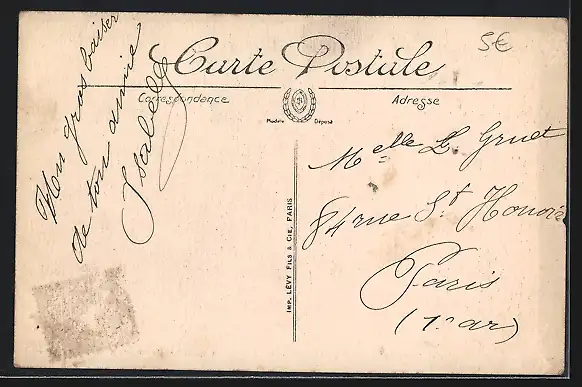 5€
Carte Postale
Correspondance
Adresse
Modèle Déposé
Mon gros baiser
de ton amie
Isabelle
IMP. LÉVY FILS & CIE, PARIS
Melle L. Gruet
84 rue St Honoré
Paris
(1er ar)